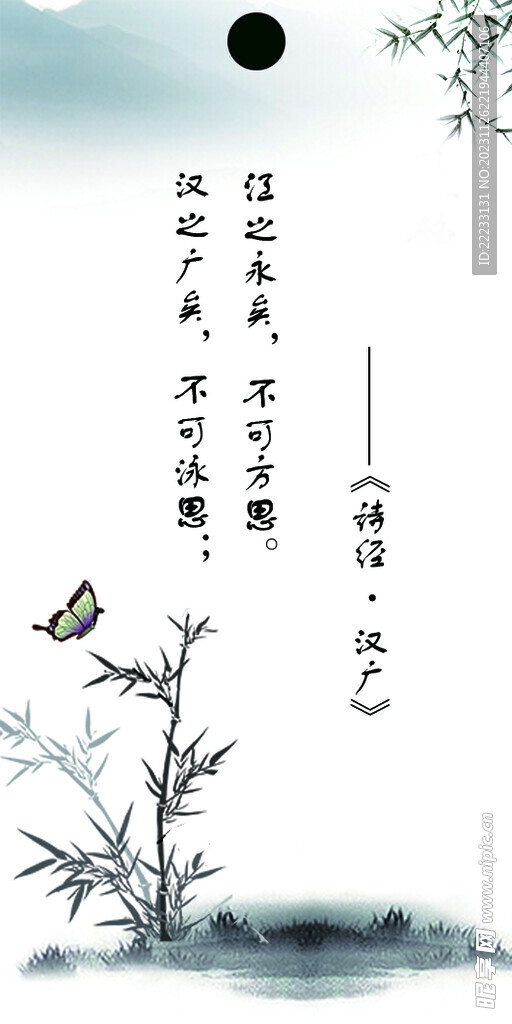 汉之广矣，不可泳思；
江之永矣，不可方思。
——《诗经·汉广》
ID:22233131 NO:20231126221944407106
昵享网 www.nipic.cn